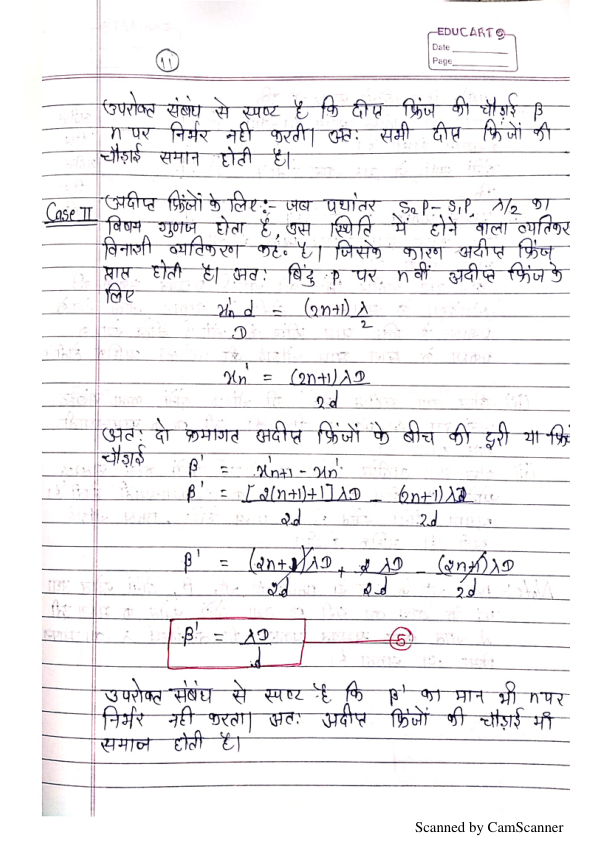 EDUCART
Date
Page
11
उपरोक्त संबंध से स्पष्ट है कि दीप्त फ्रिंज की चौड़ाई β
n पर निर्भर नही करती। अतः सभी दीप्त फ्रिंजों की
चौड़ाई समान होती है।
Case II अदीप्त फ्रिंजों के लिए:- जब पथांतर S₂P - S₁P, λ/2 का
विषम गुणज होता है, इस स्थिति में होने वाला व्यतिकर
विनाशी व्यतिकरण कह. है। जिसके कारण अदीप्त फ्रिंज
प्राप्त होती है। अतः बिंदु P पर n वीं अदीप्त फ्रिंज के
लिए
xn' d / D = (2n+1) λ / 2
xn' = (2n+1) λD / 2d
अतः दो क्रमागत अदीप्त फ्रिंजों के बीच की दूरी या फ्रिं
चौड़ाई
β' = x'n+1 - xn'
β' = [2(n+1)+1] λD / 2d - (2n+1) λD / 2d
β' = (2n+1) λD / 2d + 2 λD / 2d - (2n+1) λD / 2d
β' = λD / d 5
उपरोक्त संबंध से स्पष्ट है कि β' का मान भी n पर
निर्भर नही करता। अतः अदीप्त फ्रिंजों की चौड़ाई भी
समान होती है।
Scanned by CamScanner